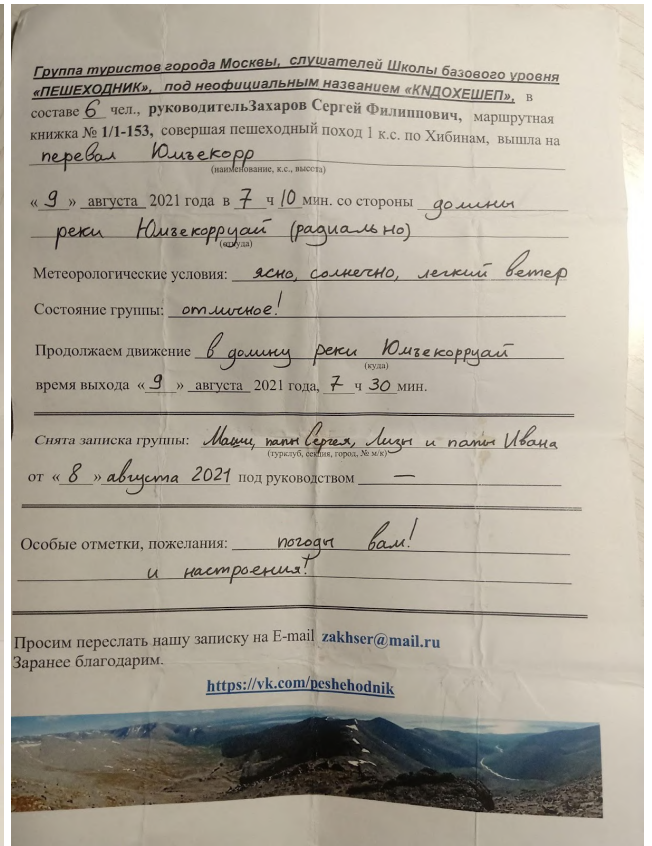 Группа туристов города Москвы, слушателей Школы базового уровня
«ПЕШЕХОДНИК», под неофициальным названием «КNДОХЕШЕП», в
составе 6 чел., руководительЗахаров Сергей Филиппович, маршрутная
книжка № 1/1-153, совершая пешеходный поход 1 к.с. по Хибинам, вышла на
перевал Юмъекорр
(наименование, к.с., высота)
« 9 » августа 2021 года в 7 ч 10 мин. со стороны долины
реки Юмъекорруай (радиально)
(откуда)
Метеорологические условия: ясно, солнечно, легкий ветер
Состояние группы: отличное!
Продолжаем движение в долину реки Юмъекорруай
(куда)
время выхода « 9 » августа 2021 года, 7 ч 30 мин.
Снята записка группы: Маши, папы Сергея, Лизы и папы Ивана
(турклуб, секция, город, № м/к)
от « 8 » августа 2021 под руководством —
Особые отметки, пожелания: погоды вам!
и настроения!
Просим переслать нашу записку на E-mail zakhser@mail.ru
Заранее благодарим.
https://vk.com/peshehodnik